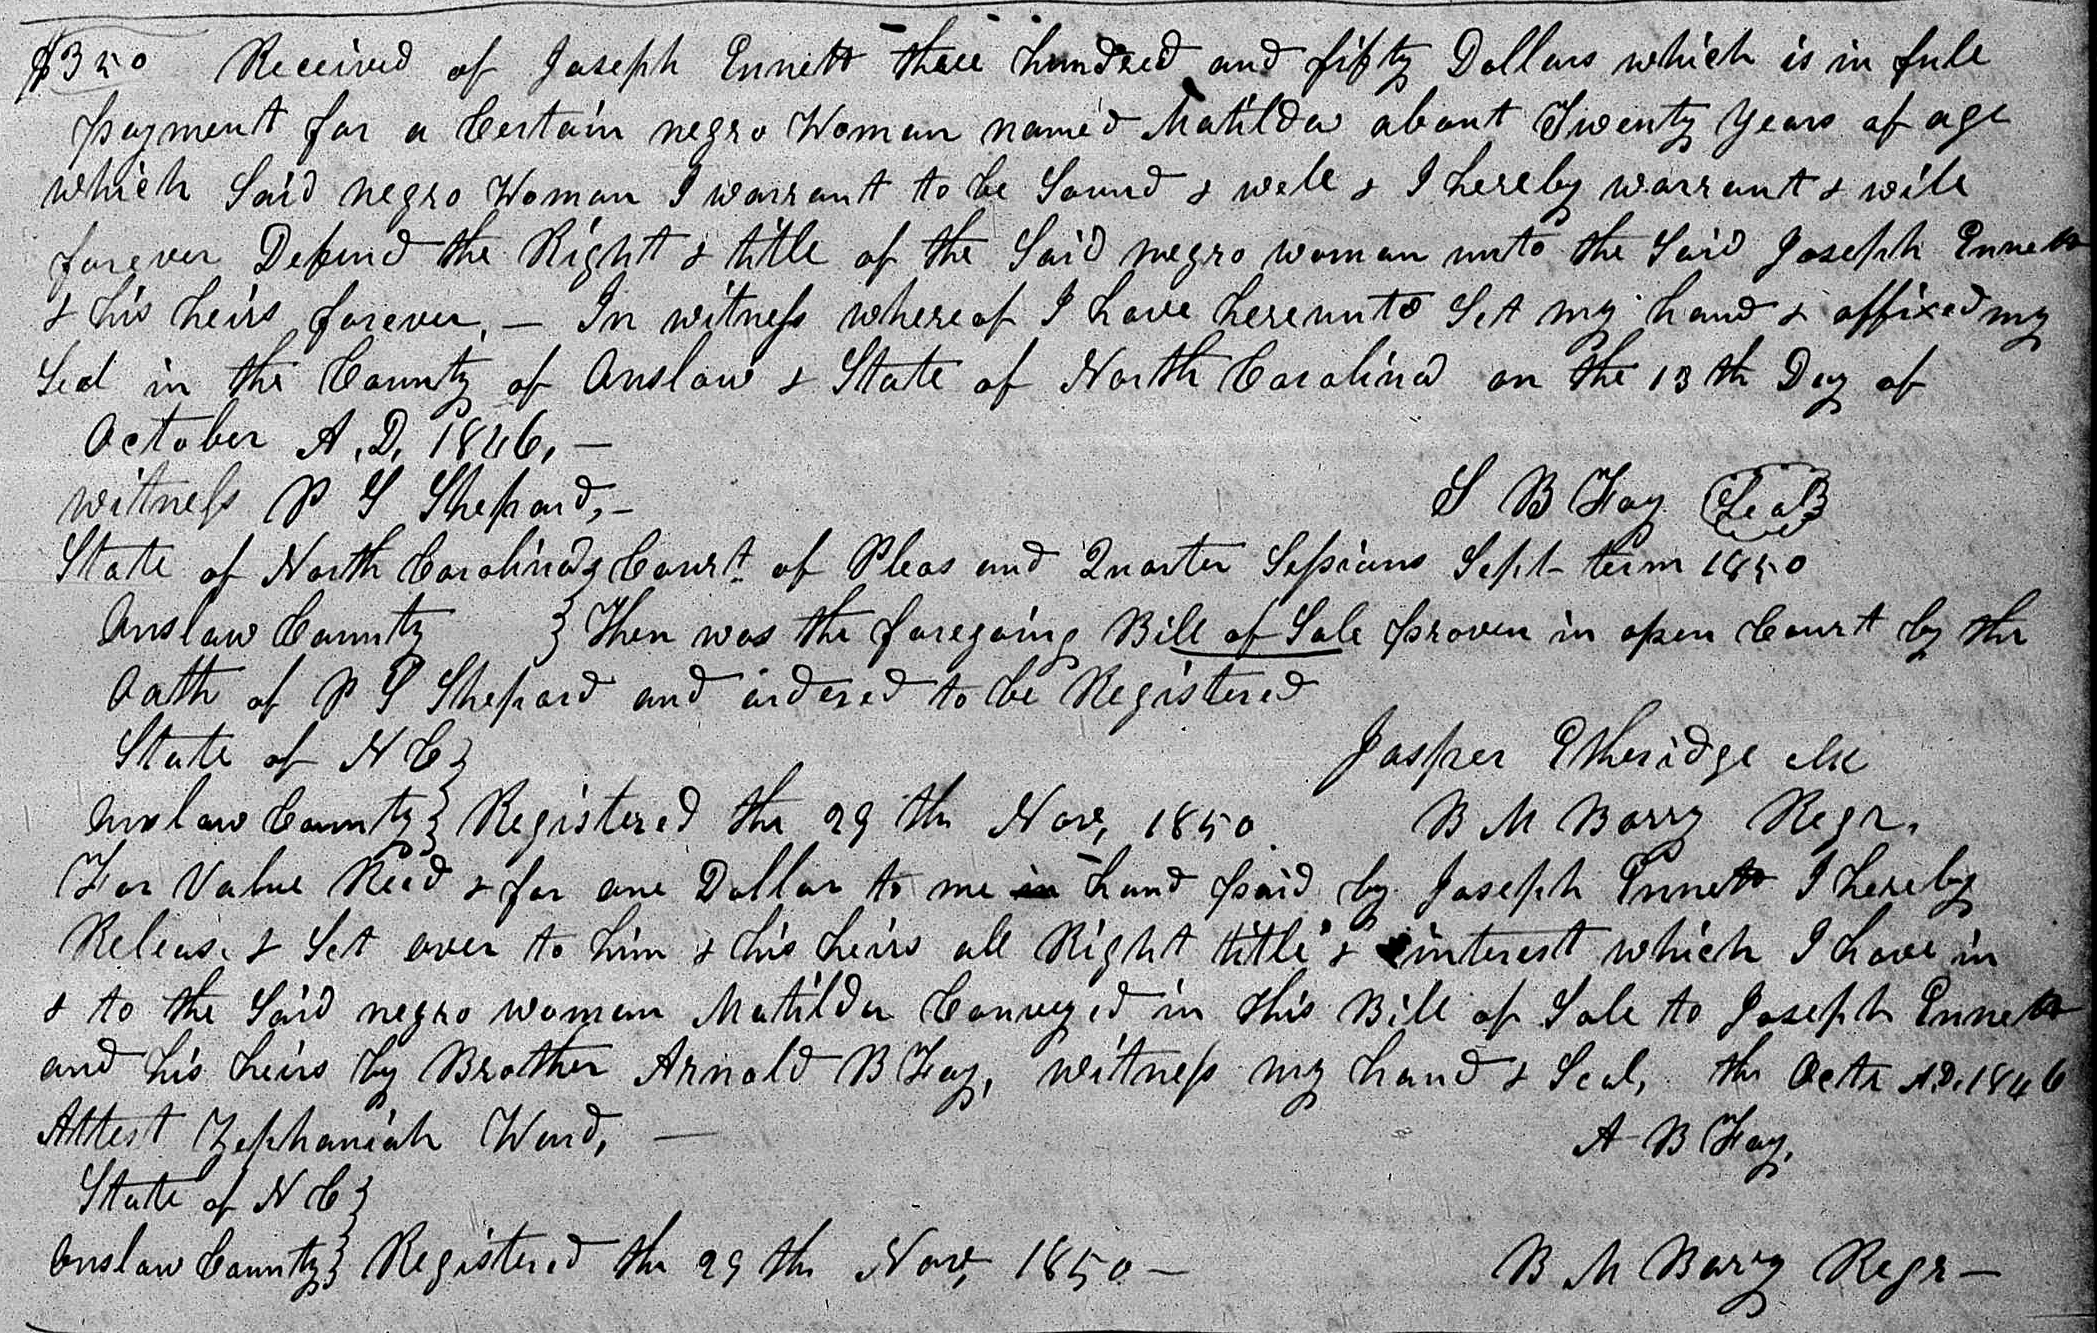 $350 Received of Joseph Ennett three hundred and fifty Dollars which is in full
payment for a Certain negro Woman named Matilda about Twenty Years of age
which Said negro Woman I warrant to be Sound & well & I hereby warrant & will
forever Defend the Right & title of the Said negro woman unto the Said Joseph Ennett
& his heirs forever, — In witness whereof I have hereunto Set my hand & affixed my
Seal in the County of Onslow & State of North Carolina on the 13th Day of
October A.D. 1846, —
witness P G Shepard, – S B Fay Seal
State of North Carolina Court of Pleas and Quarter Sessions Sept term 1850
Onslow County } Then was the foregoing Bill of Sale proven in open Court by the
Oath of P G Shepard and ordered to be Registered
State of N C } Jasper Etheridge Clk
Onslow County } Registered the 29th Nov, 1850 B M Barry Regr.
For Value Recd & for one Dollar to me in hand paid by Joseph Ennett I hereby
Release & Set over to him & his heirs all Right title & interest which I have in
& to the Said negro woman Matilda Conveyed in this Bill of Sale to Joseph Ennett
and his heirs by Brother Arnold B Fay, witness my hand & Seal, the Octr A.D. 1846
Attest Zephaniah Ward, — A B Fay.
State of N C }
Onslow County } Registered the 29th Nov, 1850 — B M Barry Regr —